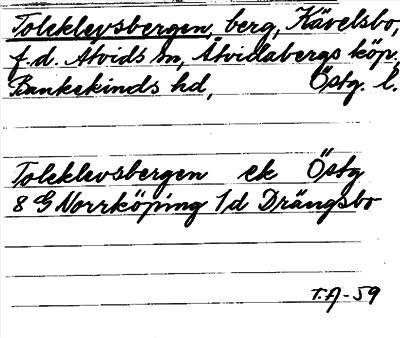 Tolcklevsbergen, berg, Kävelsbo,
f.d. Åtvids sn, Åtvidabergs köp.
Bankekinds hd, Östg. l.
Tolcklevsbergen ek Östg
8 G Norrköping 1d Drängsbo
T.A-59